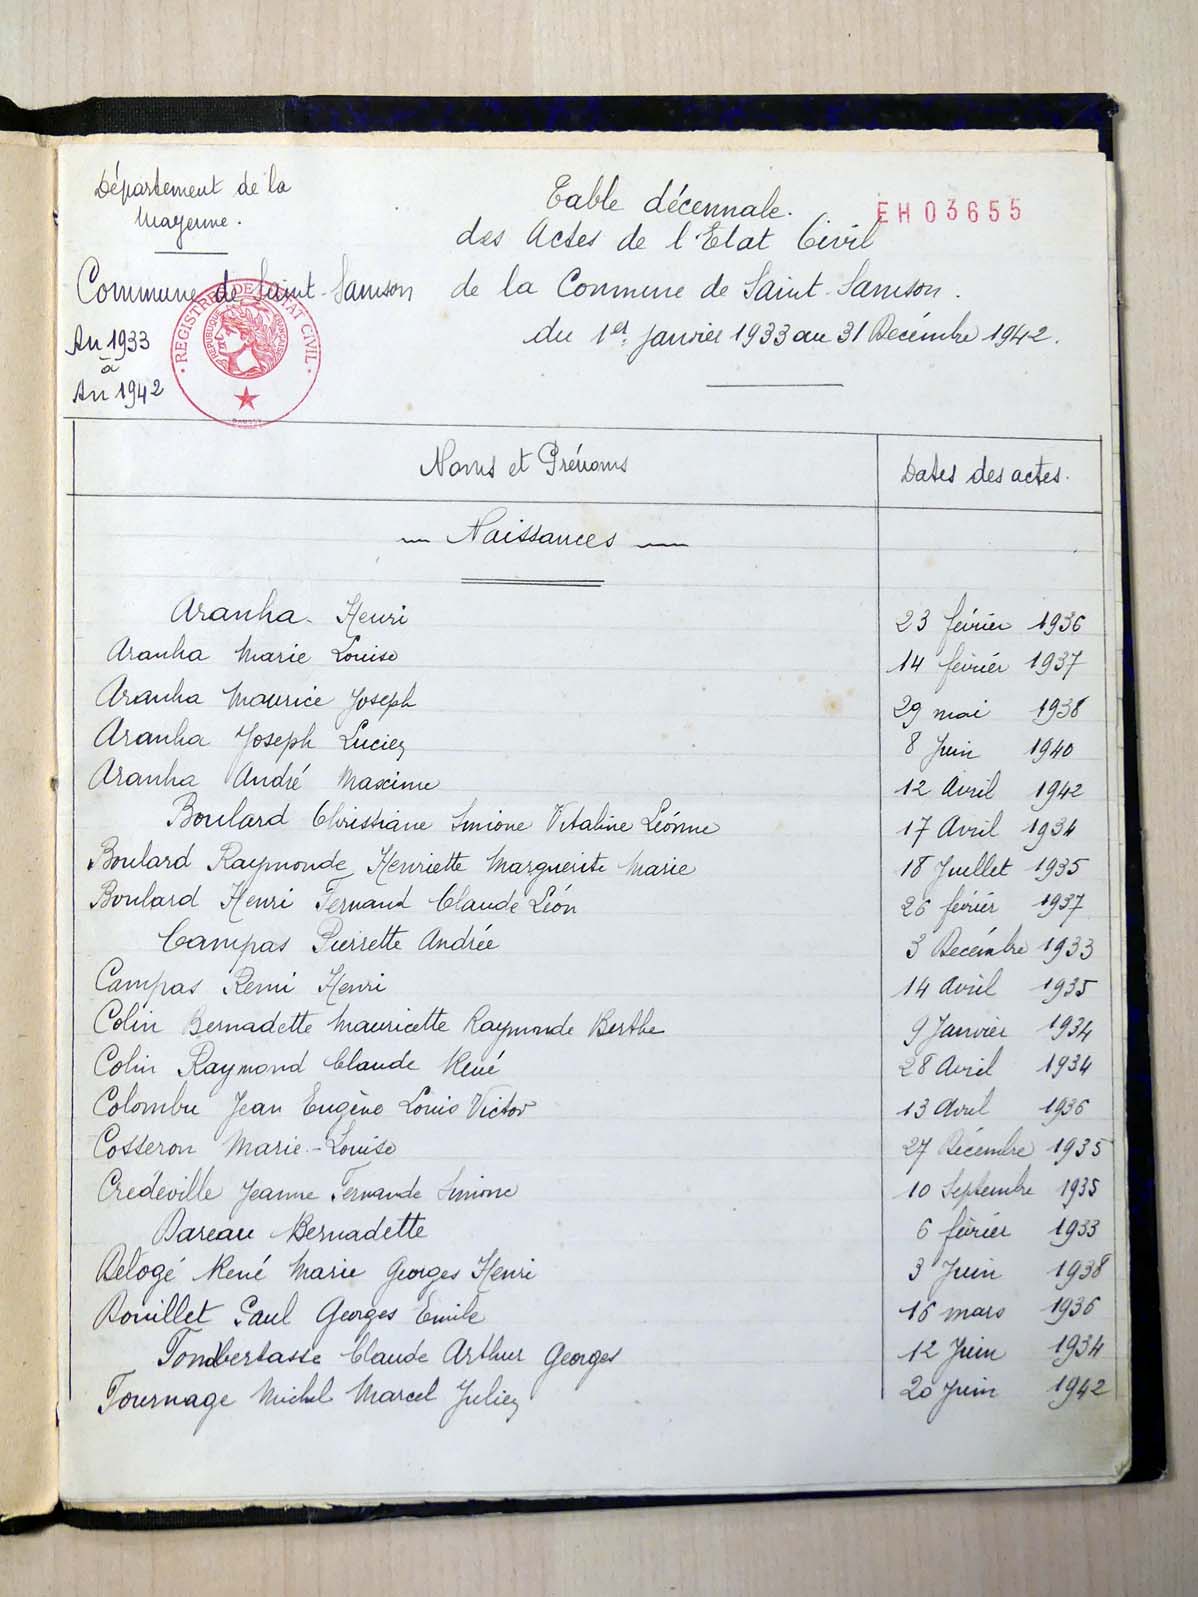 Département de la
Mayenne.
Commune de Saint-Samson
An 1933
à
An 1942
REGISTRE DE L'ETAT CIVIL
REPUBLIQUE FRANÇAISE
Table décennale.
EH03655
des Actes de l'Etat Civil
de la Commune de Saint-Samson.
du 1er Janvier 1933 au 31 Decémbre 1942.
Noms et Prénoms Dates des actes.
Naissances
Aranha Henri 23 février 1936
Aranha Marie Louise 14 février 1937
Aranha Maurice Joseph 29 mai 1938
Aranha Joseph Lucien 8 Juin 1940
Aranha André Maxime 12 Avril 1942
Boulard Christiane Simone Vitaline Léonne 17 Avril 1934
Boulard Raymonde Henriette Marguerite Marie 18 Juillet 1935
Boulard Henri Fernand Claude Léon 26 février 1937
Campas Pierrette Andrée 3 Decémbre 1933
Campas Remi Henri 14 Avril 1935
Colin Bernadette Mauricette Raymonde Berthe 9 Janvier 1934
Colin Raymond Claude René 28 Avril 1934
Colombu Jean Eugène Louis Victor 13 Avril 1936
Cosseron Marie-Louise 27 Décembre 1935
Credéville Jeanne Fernande Simone 10 Septembre 1935
Dareau Bernadette 6 février 1933
Delogé René Marie Georges Henri 3 Juin 1938
Douillet Paul Georges Emile 16 mars 1936
Fombertasse Claude Arthur Georges 12 Juin 1934
Fournage Michel Marcel Julien 20 Juin 1942